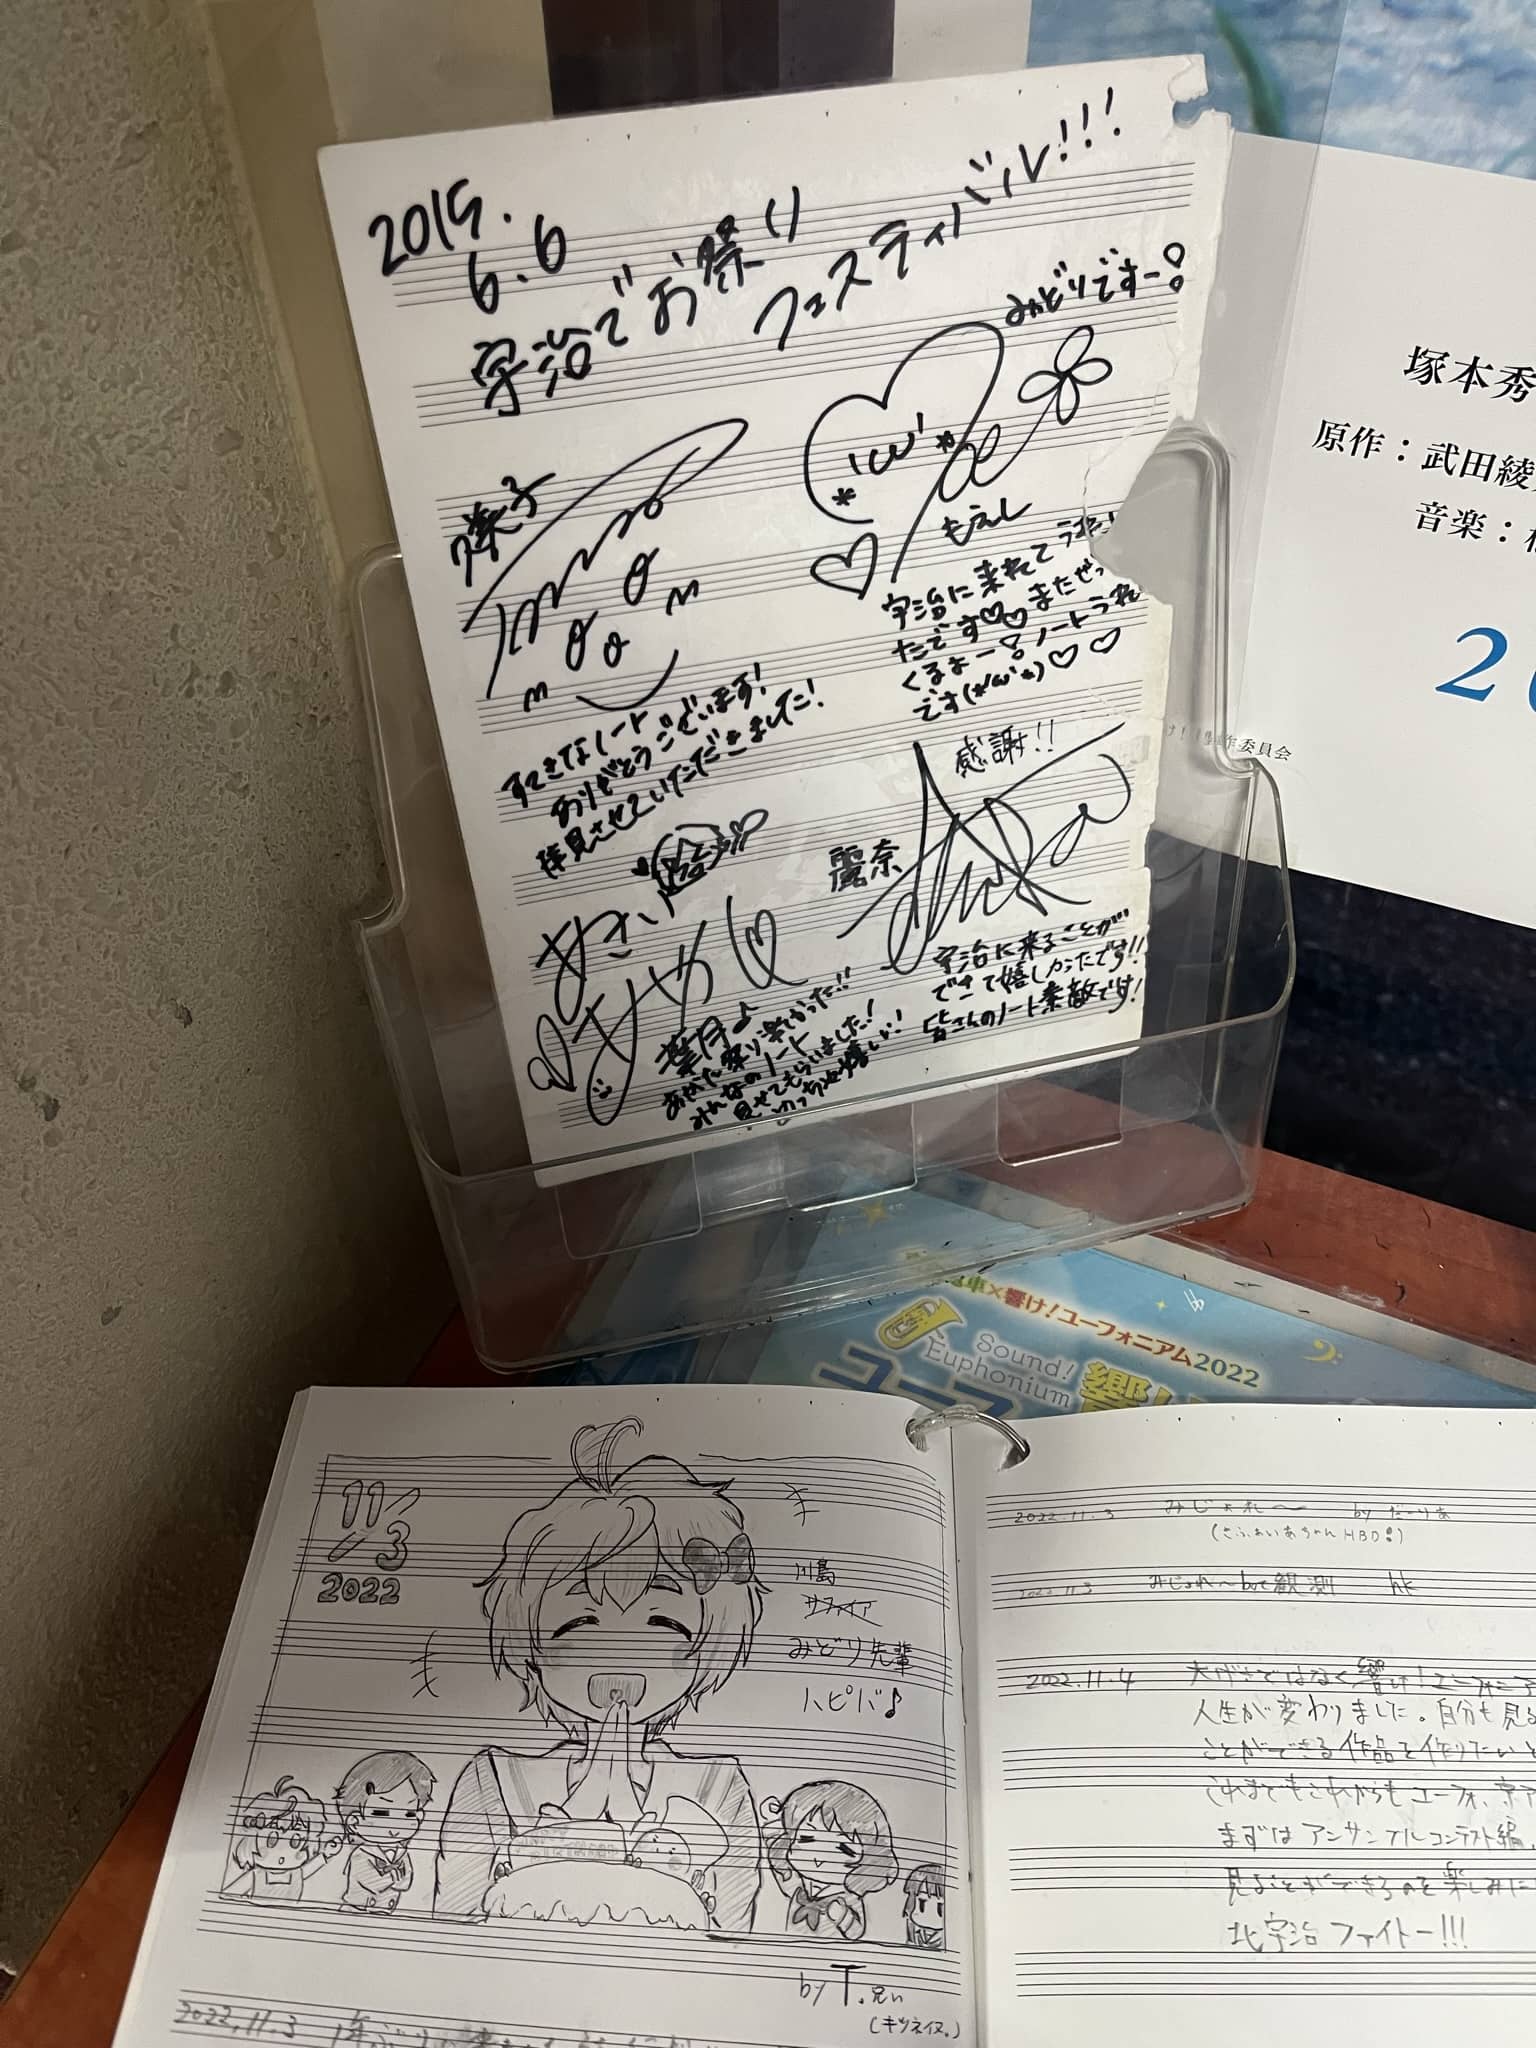 2015.
6.6
宇治でお祭り
フェスティバル!!!
みどりですー!
もえし
宇治に来れてうれ
たです♡♡またぜっ
くるよー!ノートうれ
です(*'ω'*)♡♡
すてきなノート
ありがとうございます!
拝見させていただきました!
感謝!!
麗奈
宇治に来ることが
できて嬉しかったです!!
皆さんのノート素敵です!
あやめ
葉月♪
あがた祭り楽しかった!!
みんなのノート
見せてもらいました!
めっちゃ嬉しい!
塚本秀
原作:武田綾
音楽:
け!製作委員会
車×響け!ユーフォニアム2022
Sound!
Euphonium
ユーフ
響け
11/3
2022
川島
サファイア
みどり先輩
ハピバ♪
by T.兄ぃ
(キツネイヌ。)
2022.11.3
2022.11.3 みじょれ〜 by だーりあ
(さふぁいあちゃんHBD!)
2022.11.3 みじょれ〜but観測 hk
2022.11.4 大げさではなく響け!ユーフォニア
人生が変わりました。自分も見る
ことができる作品を作りたいと
これまでもこれからもユーフォ、京ア
まずはアンサンブルコンテスト編
見ることができるのを楽しみに
北宇治ファイトー!!!